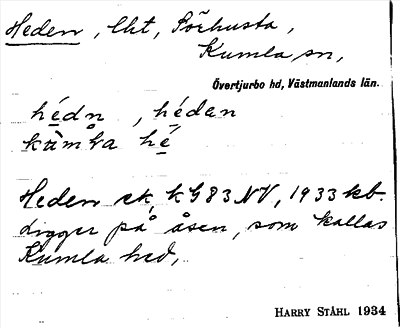 Heden, lht, Förhusta,
Kumla sn,
Övertjurbo hd, Västmanlands län.
hédn, hédan
kùmḷa hé
Heden ek, kG83NV, 1933 kb.
ligger på åsen, som kallas
Kumla hed,
HARRY STÅHL 1934